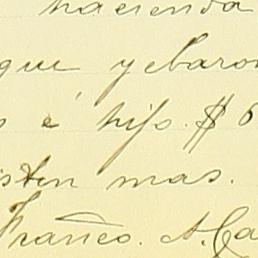 hacienda
que yebaron
s é hijo. $ 6
isten mas.
Franco. A. Ga